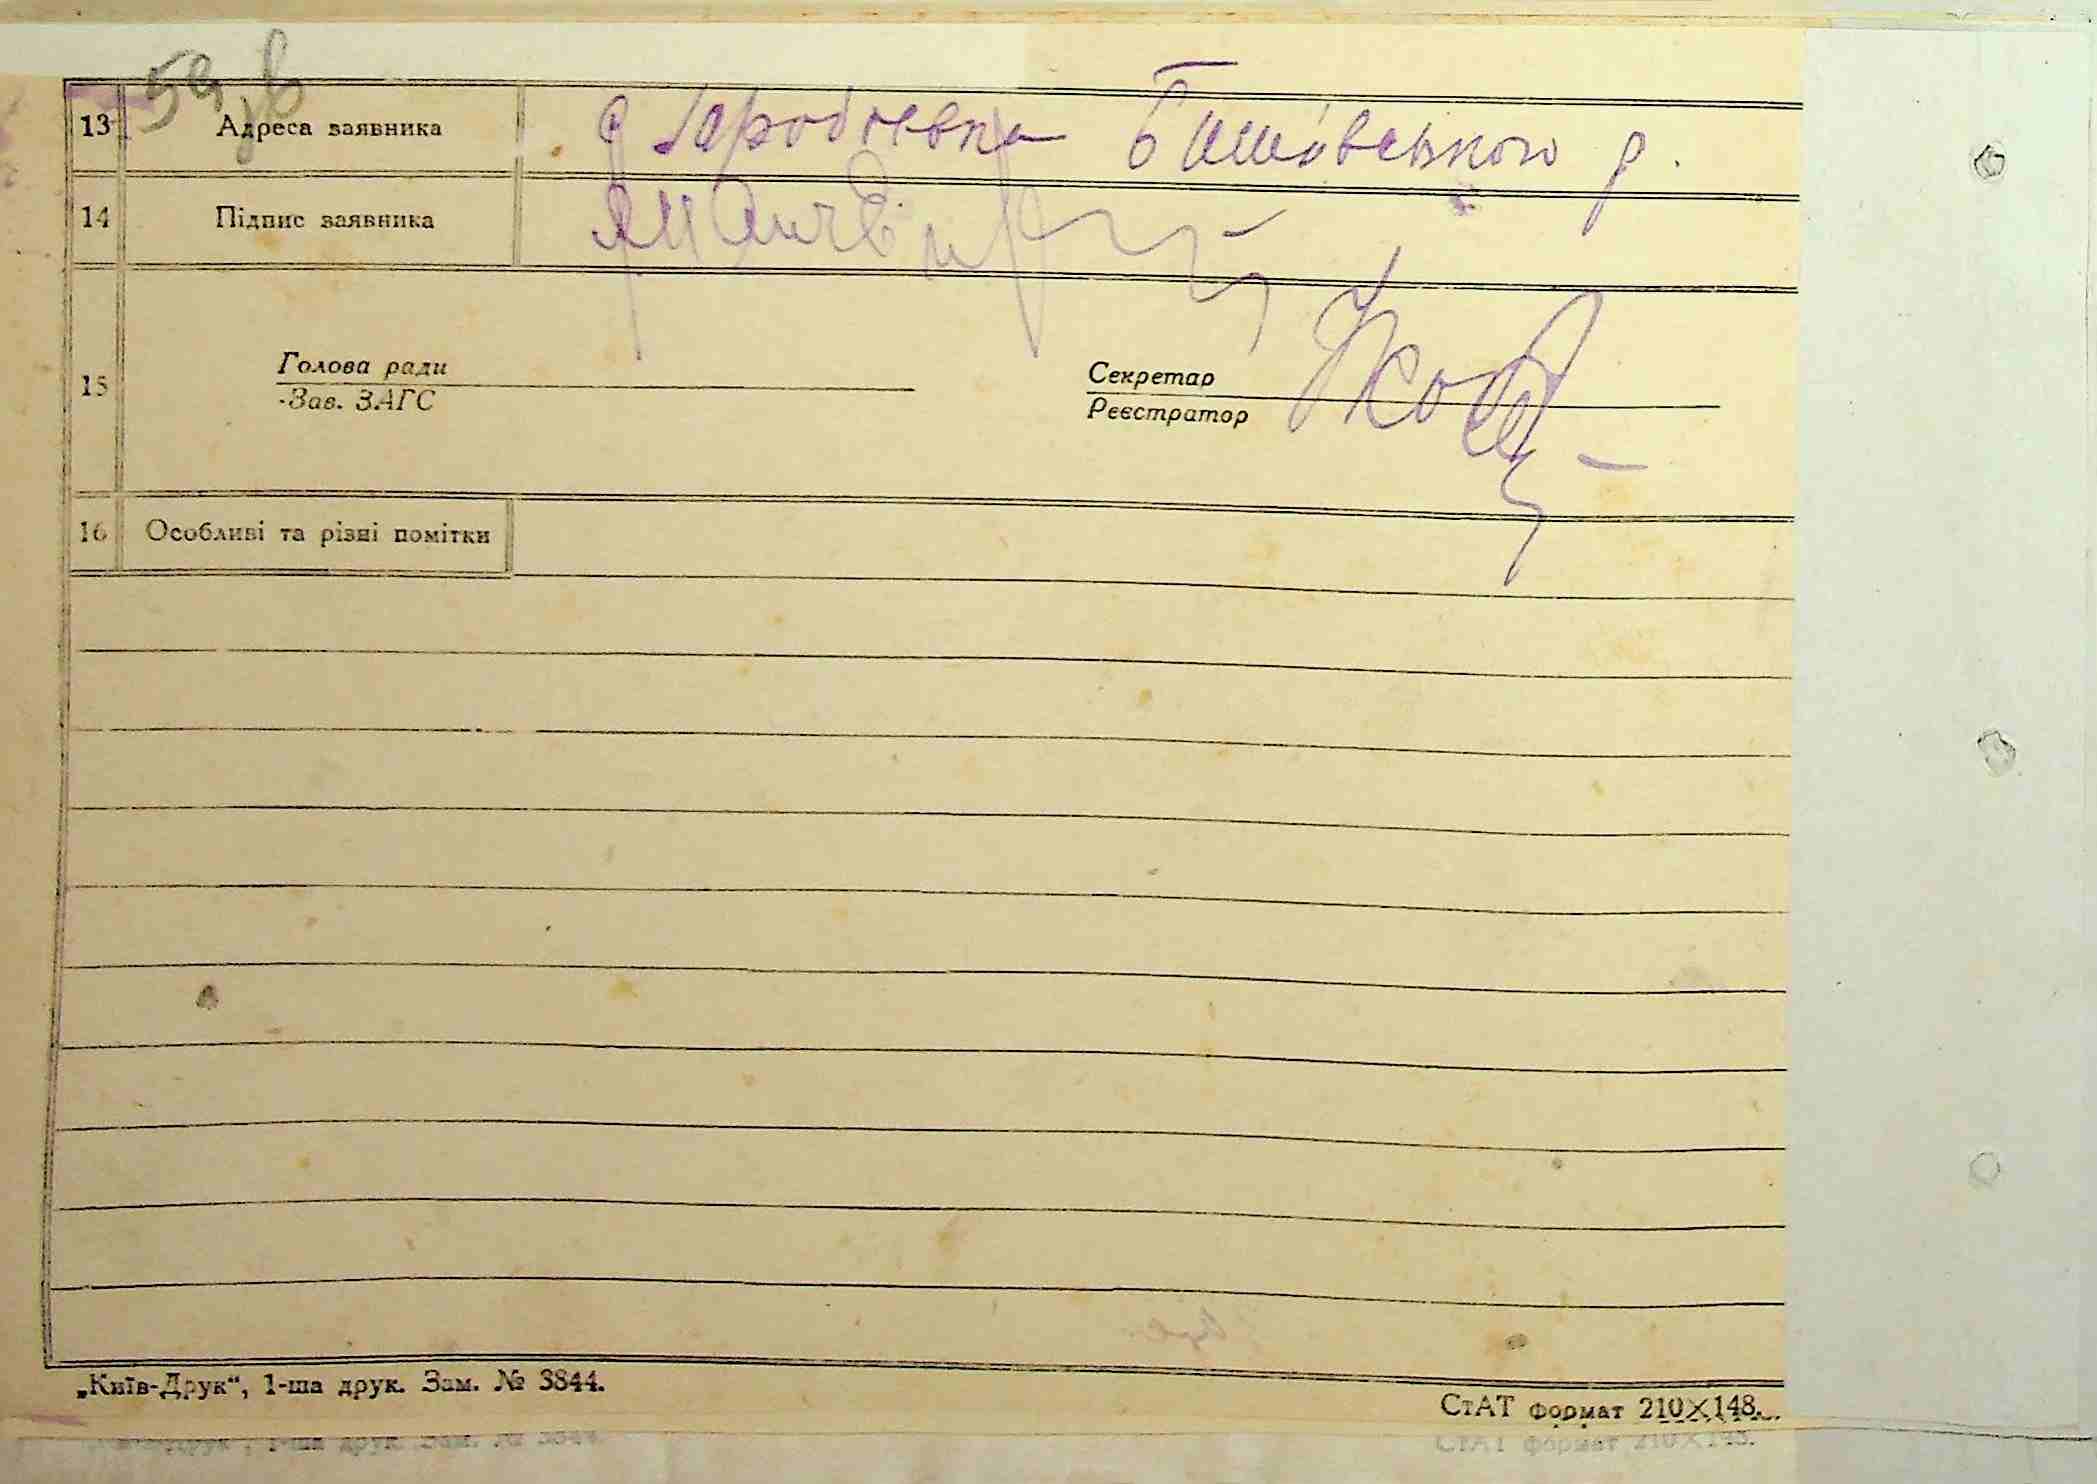 59 зв
13 Адреса заявника с Яроб евка Бишівського р.
14 Підпис заявника
15 Голова ради Секретар
Зав. ЗАГС Реєстратор
16 Особливі та різні помітки
„Київ-Друк“, 1-ша друк. Зам. № 3844.
СтАТ формат 210×148.